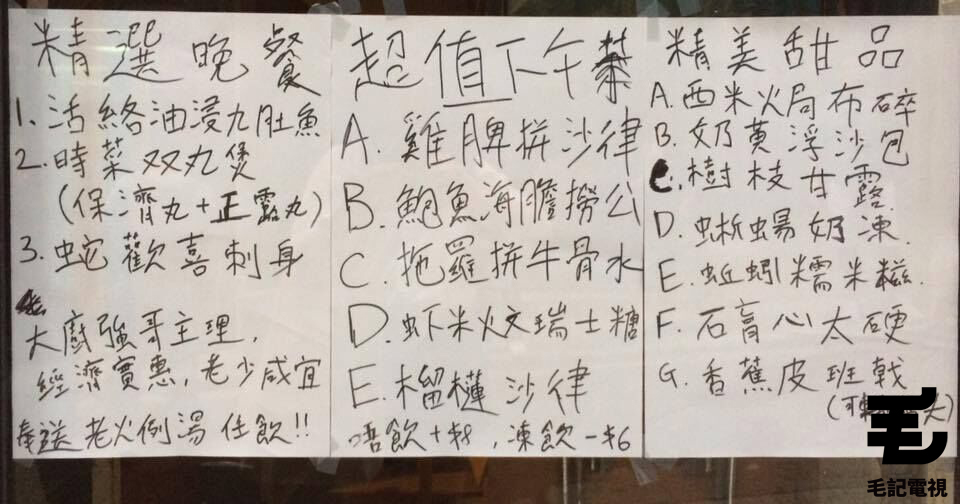 精選晚餐
1. 活絡油浸九肚魚
2. 時菜双丸煲
(保濟丸+正露丸)
3. 蛇歡喜刺身
大廚強哥主理,
經濟實惠,老少咸宜
奉送老火例湯任飲!!
超值下午茶
A. 雞脾拼沙律
B. 鮑魚海膽撈公
C. 拖羅拼牛骨水
D. 虾米火文瑞士糖
E. 榴槤沙律
唔飲+$8,凍飲-$6
精美甜品
A. 西米火局布碎
B. 奶黄浮沙包
C. 樹枝甘露
D. 蜥蜴奶凍
E. 蚯蚓糯米糍
F. 石膏心太硬
G. 香蕉皮班戟
毛
毛記電視